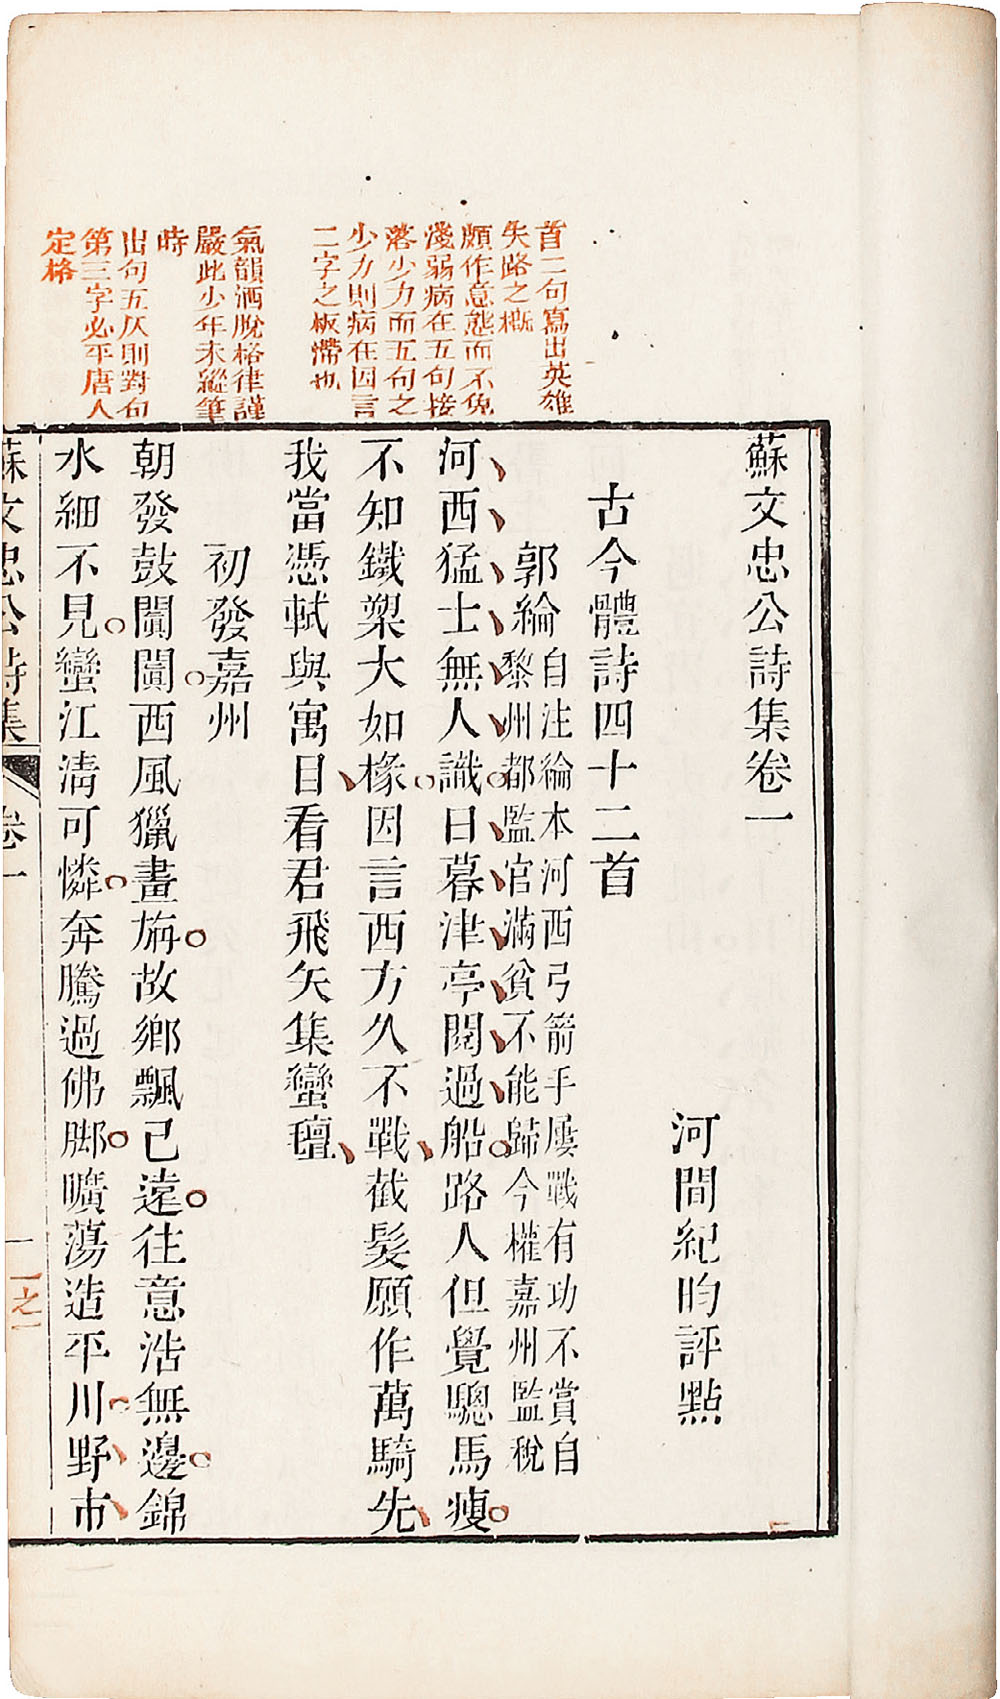 首二句寫出英雄
失路之概
頗作意態而不免
淺弱病在五句接
落少力而五句之
少力則病在因言
二字之板滯也
氣韻洒脫格律謹
嚴此少年未縱筆
時
出句五仄則對句
第三字必平唐人
定格
蘇文忠公詩集卷一
河間紀昀評點
古今體詩四十二首
郭綸
自注綸本河西弓箭手屢戰有功不賞自
黎州都監官滿貧不能歸今權嘉州監稅
河西猛士無人識日暮津亭閱過船路人但覺驄馬瘦
不知鐵槊大如椽因言西方久不戰截髮願作萬騎先
我當憑軾與寓目看君飛矢集蠻氊
初發嘉州
朝發鼓闐闐西風獵畫旃故鄉飄已遠往意浩無邊錦
水細不見蠻江淸可憐奔騰過佛脚曠蕩造平川野市
蘇文忠公詩集
卷一
一
一之一